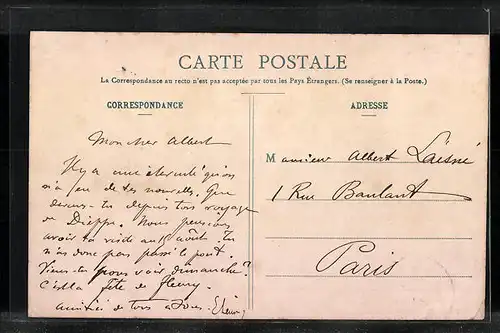 CARTE POSTALE
La Correspondance au recto n'est pas acceptée par tous les Pays Étrangers. (Se renseigner à la Poste.)
CORRESPONDANCE
Mon cher Albert
Il y a une éternité qu'on
n'a eu de tes nouvelles. Que
deviens-tu depuis ton voyage
à Dieppe. Nous pensions
avoir ta visite au 15 août. Tu
n'as donc pas passé le pont.
Viens-tu nous voir dimanche?
C'est la fête de Fleury.
Amitiés de tous
ADRESSE
Monsieur Albert Laisné
1 Rue Baulant
Paris